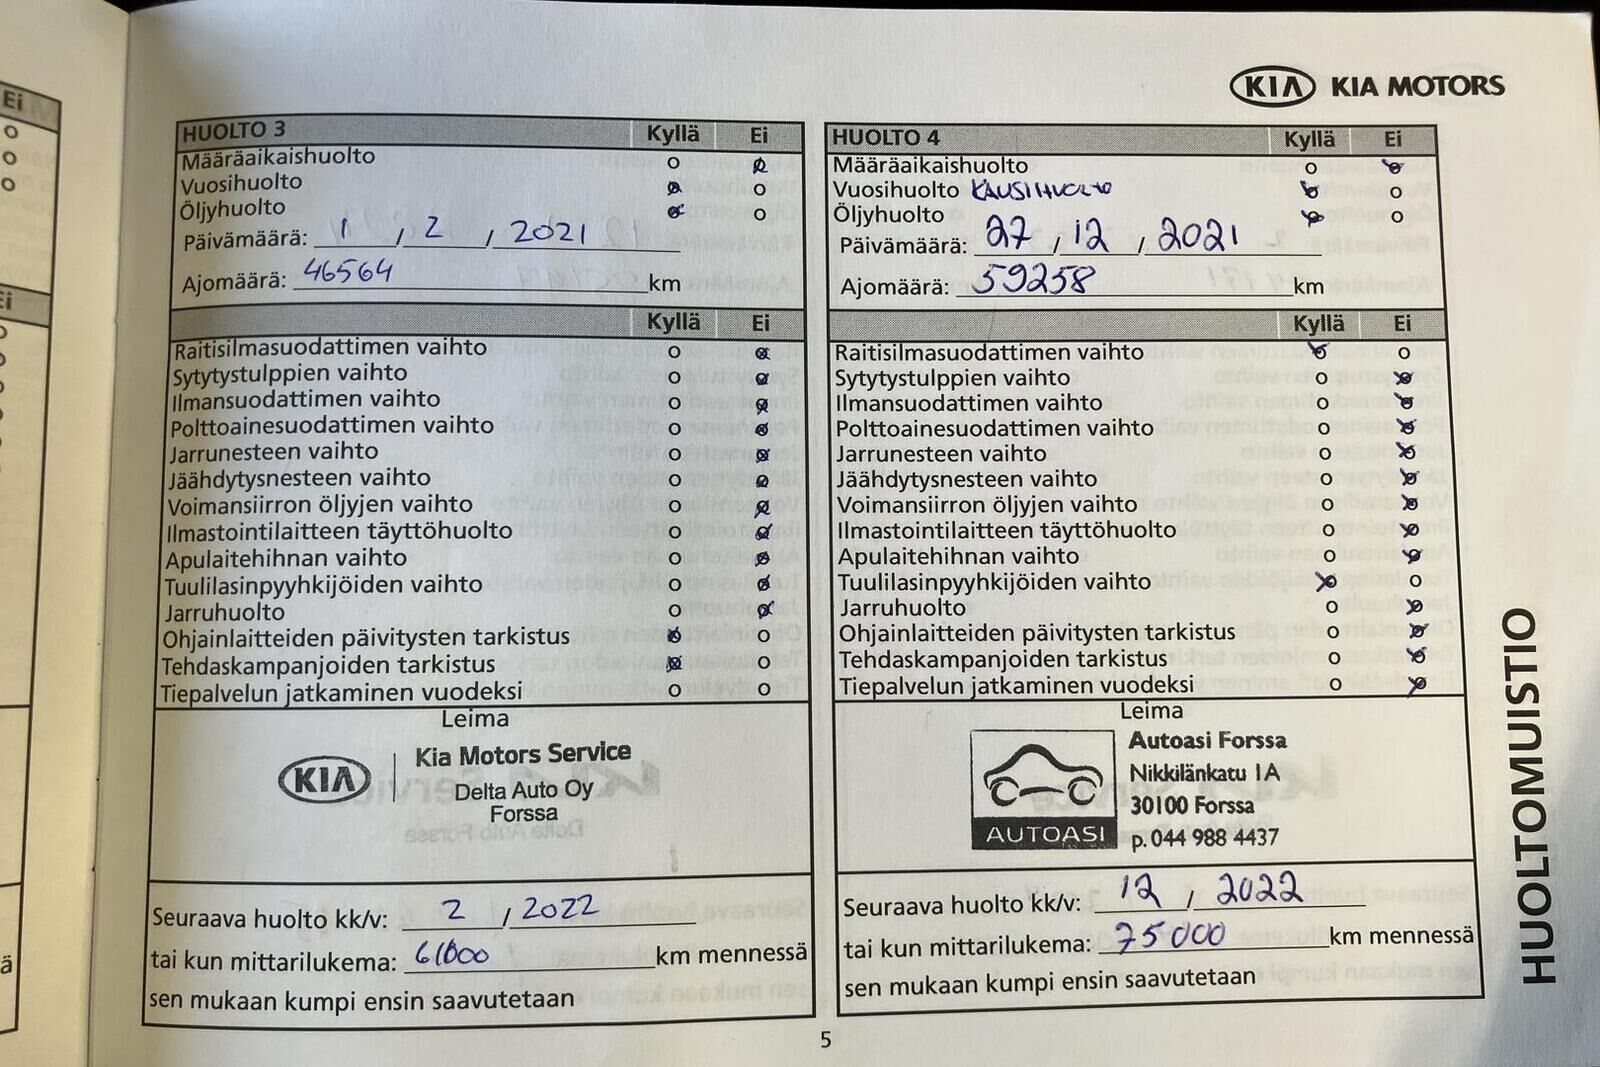 Ei
Ei
ä
KIA KIA MOTORS
HUOLTO 3 Kyllä Ei
Määräaikaishuolto o o
Vuosihuolto o o
Öljyhuolto o o
Päivämäärä: 1 / 2 / 2021
Ajomäärä: 46564 km
Kyllä Ei
Raitisilmasuodattimen vaihto o o
Sytytystulppien vaihto o o
Ilmansuodattimen vaihto o o
Polttoainesuodattimen vaihto o o
Jarrunesteen vaihto o o
Jäähdytysnesteen vaihto o o
Voimansiirron öljyjen vaihto o o
Ilmastointilaitteen täyttöhuolto o o
Apulaitehihnan vaihto o o
Tuulilasinpyyhkijöiden vaihto o o
Jarruhuolto o o
Ohjainlaitteiden päivitysten tarkistus o o
Tehdaskampanjoiden tarkistus o o
Tiepalvelun jatkaminen vuodeksi o o
Leima
KIA Kia Motors Service
Delta Auto Oy
Forssa
Seuraava huolto kk/v: 2 / 2022
tai kun mittarilukema: 61000 km mennessä
sen mukaan kumpi ensin saavutetaan
HUOLTO 4 Kyllä Ei
Määräaikaishuolto o o
Vuosihuolto KAUSIHUOLTO o o
Öljyhuolto o o
Päivämäärä: 27 / 12 / 2021
Ajomäärä: 59258 km
Kyllä Ei
Raitisilmasuodattimen vaihto o o
Sytytystulppien vaihto o o
Ilmansuodattimen vaihto o o
Polttoainesuodattimen vaihto o o
Jarrunesteen vaihto o o
Jäähdytysnesteen vaihto o o
Voimansiirron öljyjen vaihto o o
Ilmastointilaitteen täyttöhuolto o o
Apulaitehihnan vaihto o o
Tuulilasinpyyhkijöiden vaihto o o
Jarruhuolto o o
Ohjainlaitteiden päivitysten tarkistus o o
Tehdaskampanjoiden tarkistus o o
Tiepalvelun jatkaminen vuodeksi o o
Leima
AUTOASI
Autoasi Forssa
Nikkilänkatu 1A
30100 Forssa
p. 044 988 4437
Seuraava huolto kk/v: 12 / 2022
tai kun mittarilukema: 75000 km mennessä
sen mukaan kumpi ensin saavutetaan
HUOLTOMUISTIO
5